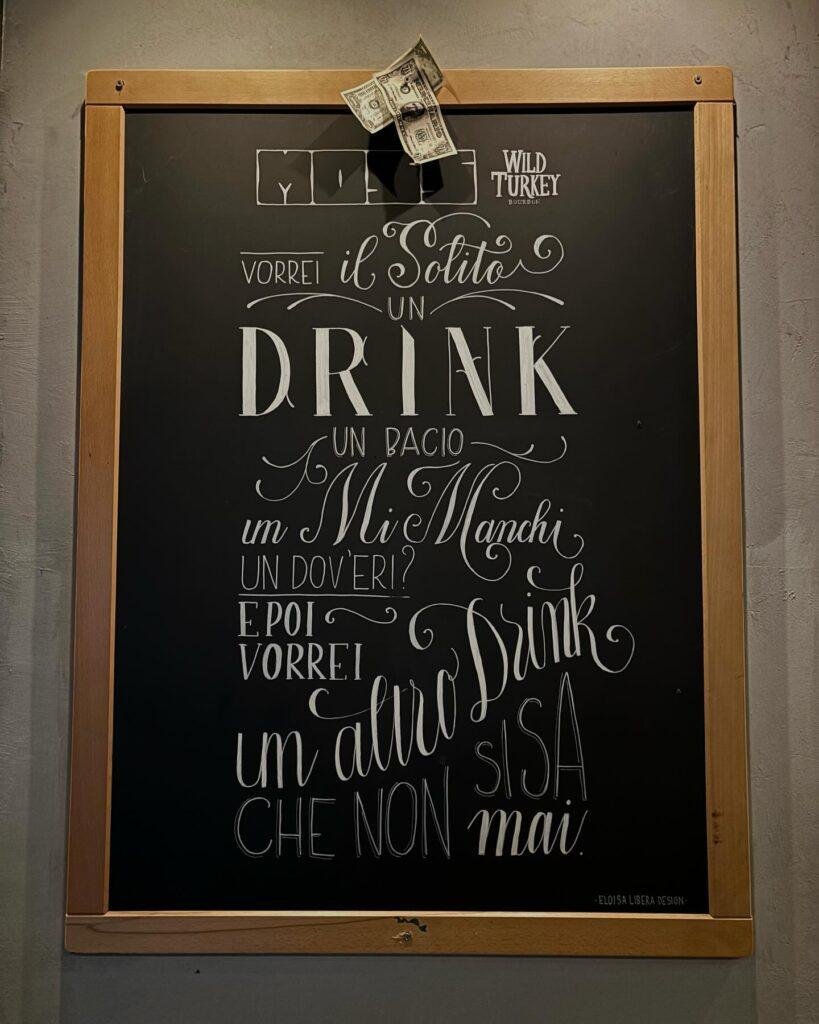 MOSS
WILD
TURKEY
BOURBON
VORREI il Solito
UN
DRINK
UN BACIO
un Mi Manchi
UN DOV'ERI?
E POI
VORREI
un altro Drink
CHE NON SI SA
mai.
-ELOISA LIBERA DESIGN-